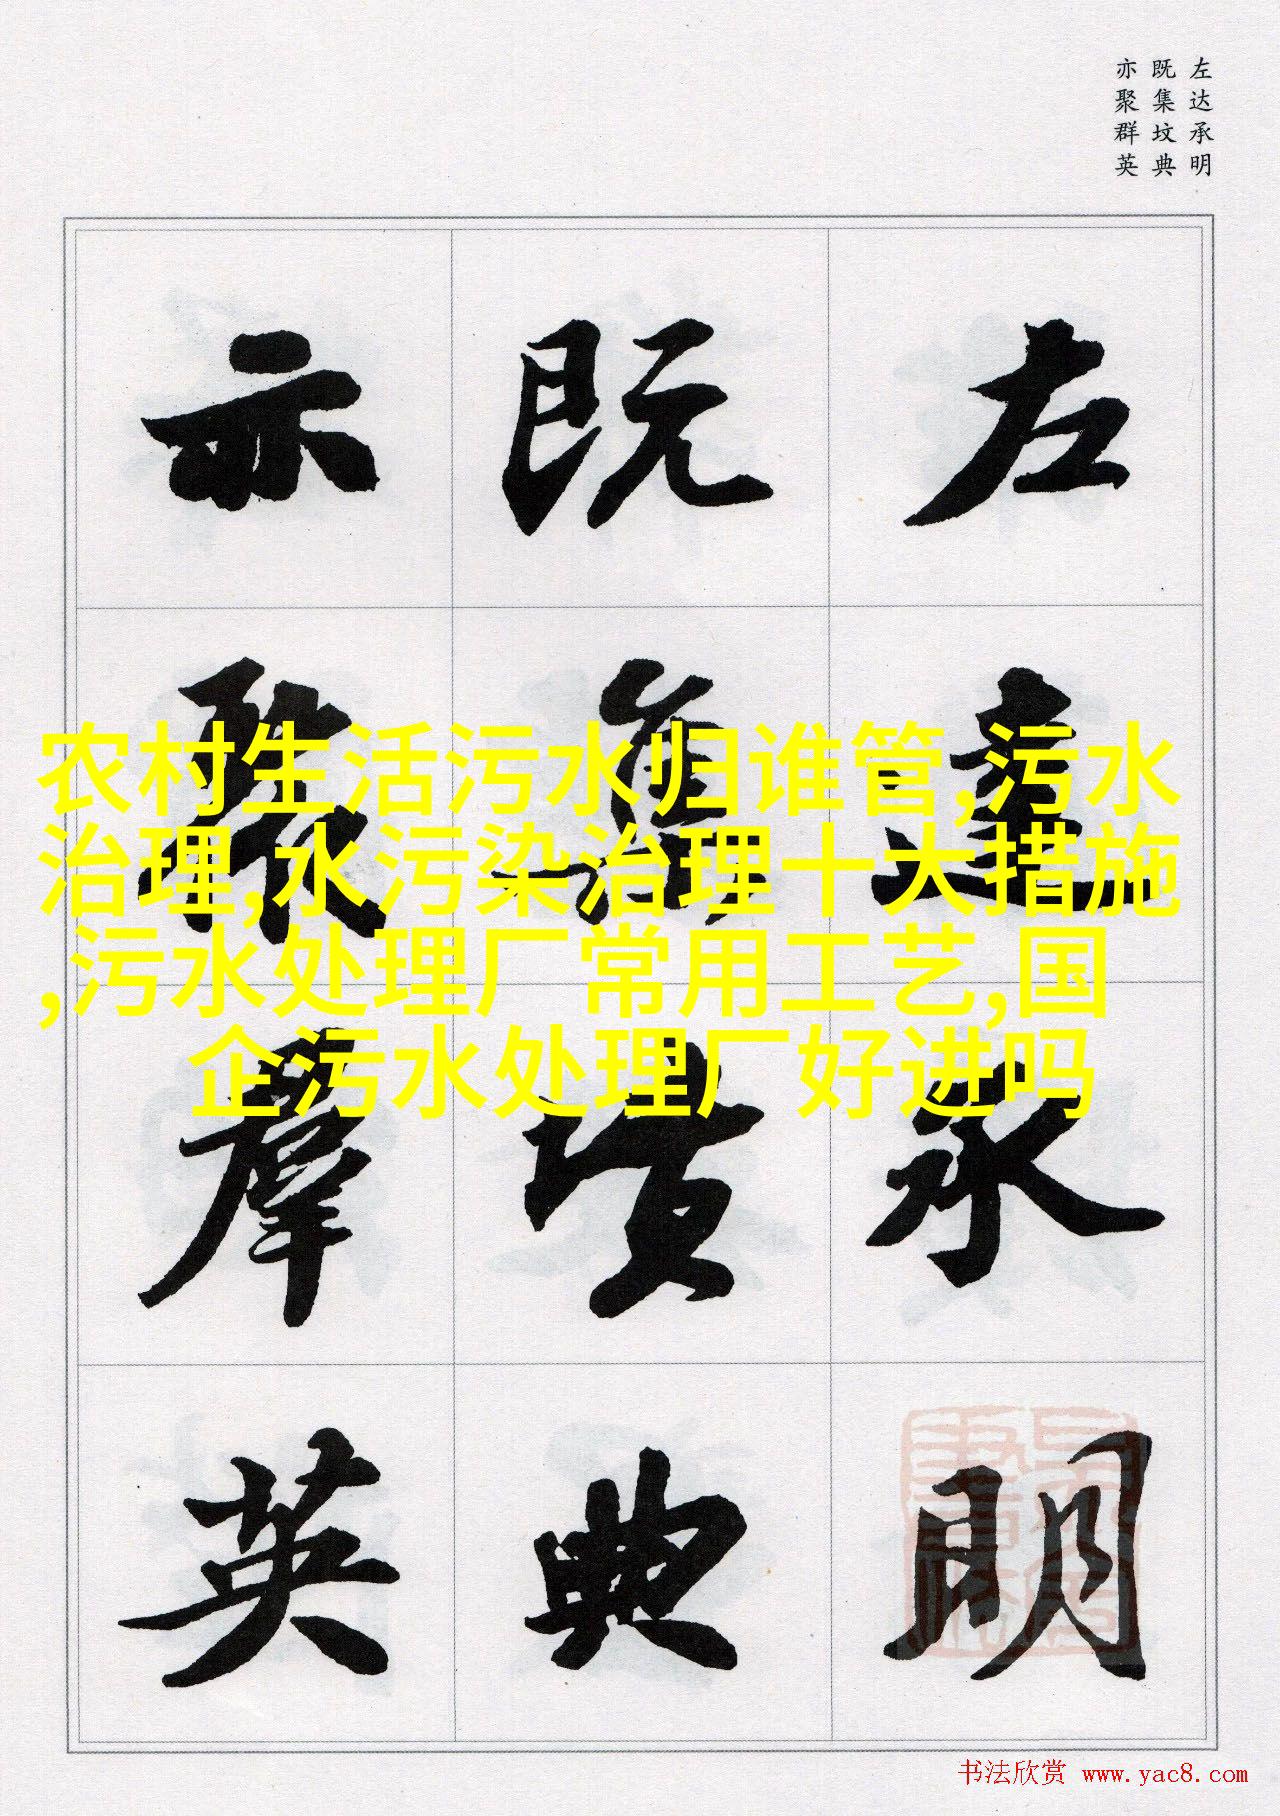 左达承明
既集坟典
亦聚群英
左達承明
既集墳典
亦聚羣英
农村生活污水归谁管,污水
治理,水污染治理十大措施
,污水处理厂常用工艺,国
企污水处理厂好进吗
书法欣赏 www.yac8.com